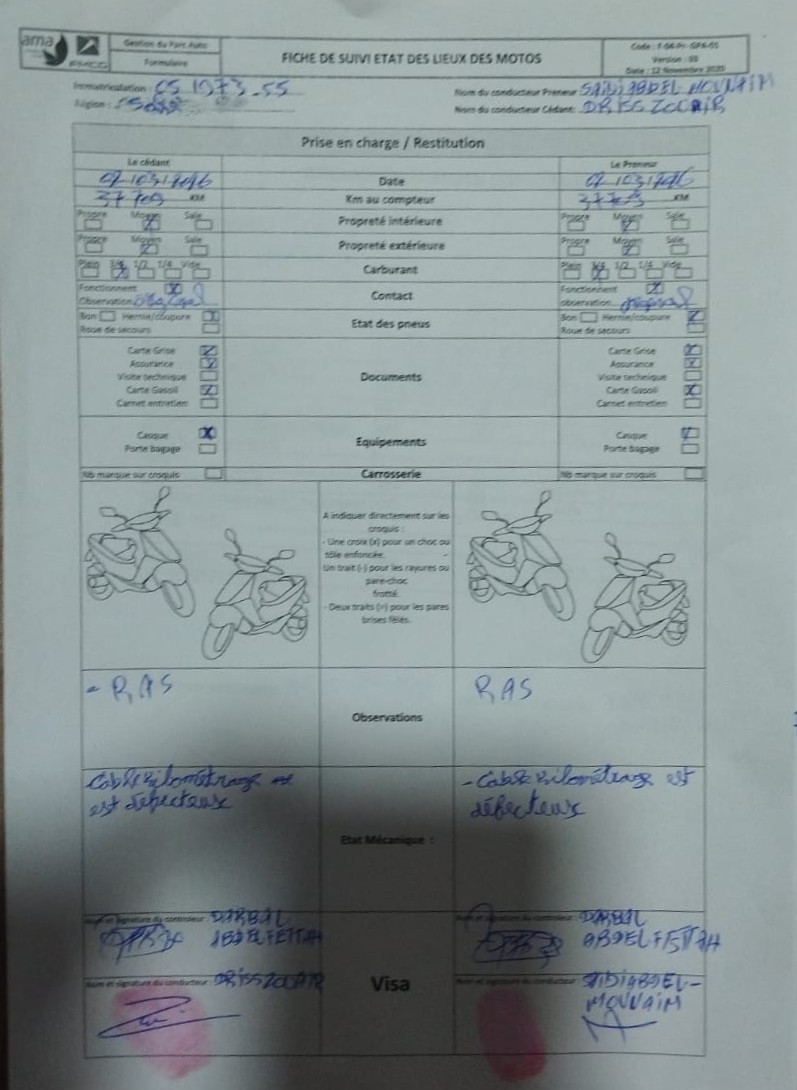 ama
Gestion du Parc Auto
Formulaire
FICHE DE SUIVI ETAT DES LIEUX DES MOTOS
Version : 
Date : 12 Novembre
Immatriculation : 1973-55
Nom du conducteur Preneur : SAIDI ABDEL MOUNAIM
Région :
Nom du conducteur Cédant : DRISS ZOUAIR
Prise en charge / Restitution
Le cédant
Le Preneur
Date
37709 KM
Km au compteur
37709 KM
Propre Moyen Sale
Propreté intérieure
Propre Moyen Sale
Propre Moyen Sale
Propreté extérieure
Propre Moyen Sale
Plein 3/4 1/2 1/4 Vide
Carburant
Plein 3/4 1/2 1/4 Vide
Fonctionnent
Contact
Fonctionnent
Observation
observation
Bon Hernie/coupure
Etat des pneus
Bon Hernie/coupure
Roue de secours
Roue de secours
Carte Grise
Carte Grise
Assurance
Assurance
Visite technique
Documents
Visite technique
Carte Gasoil
Carte Gasoil
Carnet entretien
Carnet entretien
Casque
Equipements
Casque
Porte bagage
Porte bagage
Nb marque sur croquis
Carrosserie
Nb marque sur croquis
A indiquer directement sur les
croquis :
- Une croix (x) pour un choc ou
tôle enfoncée. -
Un trait (-) pour les rayures ou
pare-choc
frotté.
- Deux traits (=) pour les pares
brises fêlés.
- RAS
RAS
Observations
Cable kilométrage
est défecteux
- Cable kilométrage est
défecteux
Etat Mécanique :
Nom et signature du contrôleur : DARBAL
ABDELFETTAH
Nom et signature du contrôleur : DARBAL
ABDELFETTAH
Visa
Nom et signature du conducteur : DRISS ZOUAIR
Nom et signature du conducteur : SAIDI ABDEL-
MOUNAIM